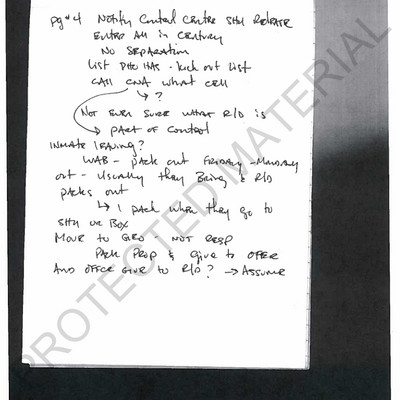 Pg # 4 Notify Control Centre SHU RELEASE
Enter All in Century
No Separation
List DHO HAS - kick out list
Call CNA what cell
→ ?
Not even sure what R/D is
→ part of control
Inmate leaving?
WAB - pack out Friday - Monday
out - usually they Bring & R/D
packs out
→ I pack when they go to
SHU or Box
Move to GRO - NOT RESP
Pack Prop & give to OFFER
And office give to R/D? → Assume
PROTECTED MATERIAL